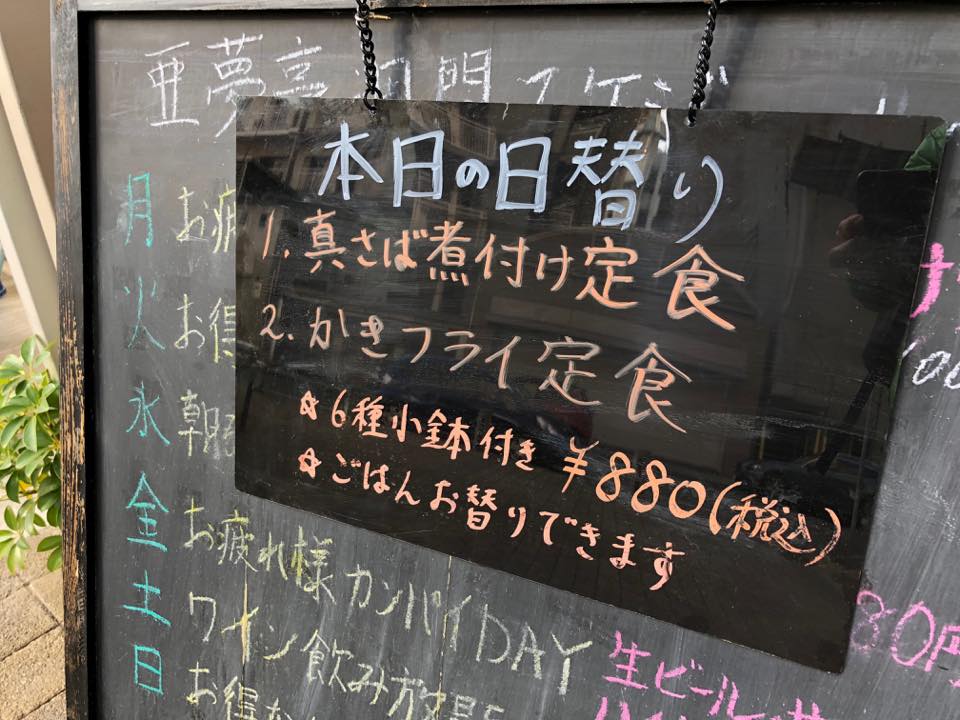 亜夢亭
本日の日替り
1. 真さば煮付け定食
2. かきフライ定食
☆6種小鉢付き ¥880(税込)
☆ごはんお替りできます
月 お疲
火 お得
水 朝
金 お疲れ様カンパイDAY
土 ワイン飲み放題
日 お得な
生ビール
80円